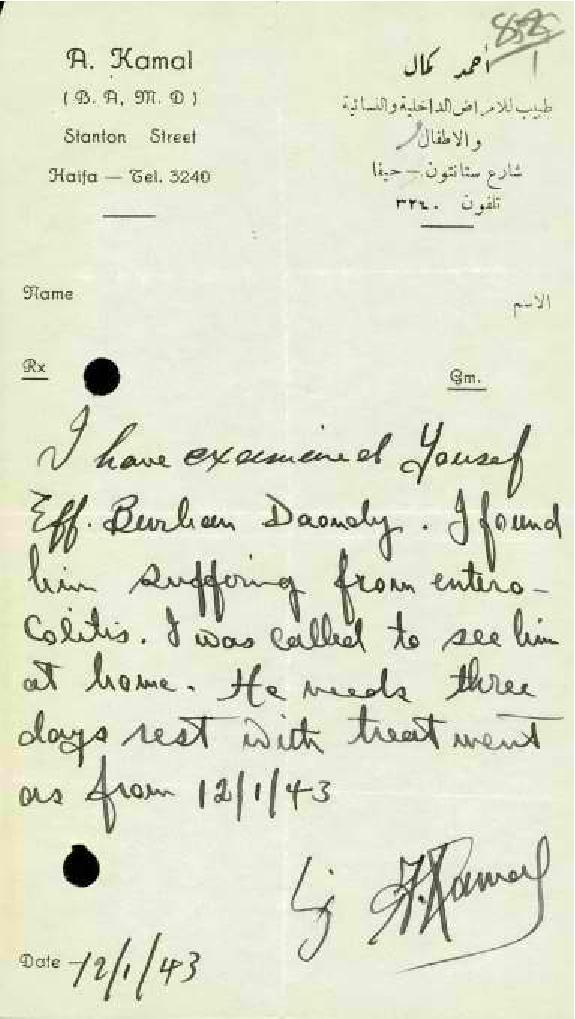 A. Kamal
(B. A, M. D)
Stanton Street
Haifa — Tel. 3240
أحمد كمال
طبيب للامراض الداخلية والنسائية
والاطفال
شارع ستانتون — حيفا
تلفون ٣٢٤٠
Name
الاسم
Rx
Gm.
I have examined Yousef
Eff. Burhan Daoudy. I found
him suffering from entero-
Colitis. I was called to see him
at home. He needs three
days rest with treatment
as from 12/1/43
A. Kamal
Date 12/1/43